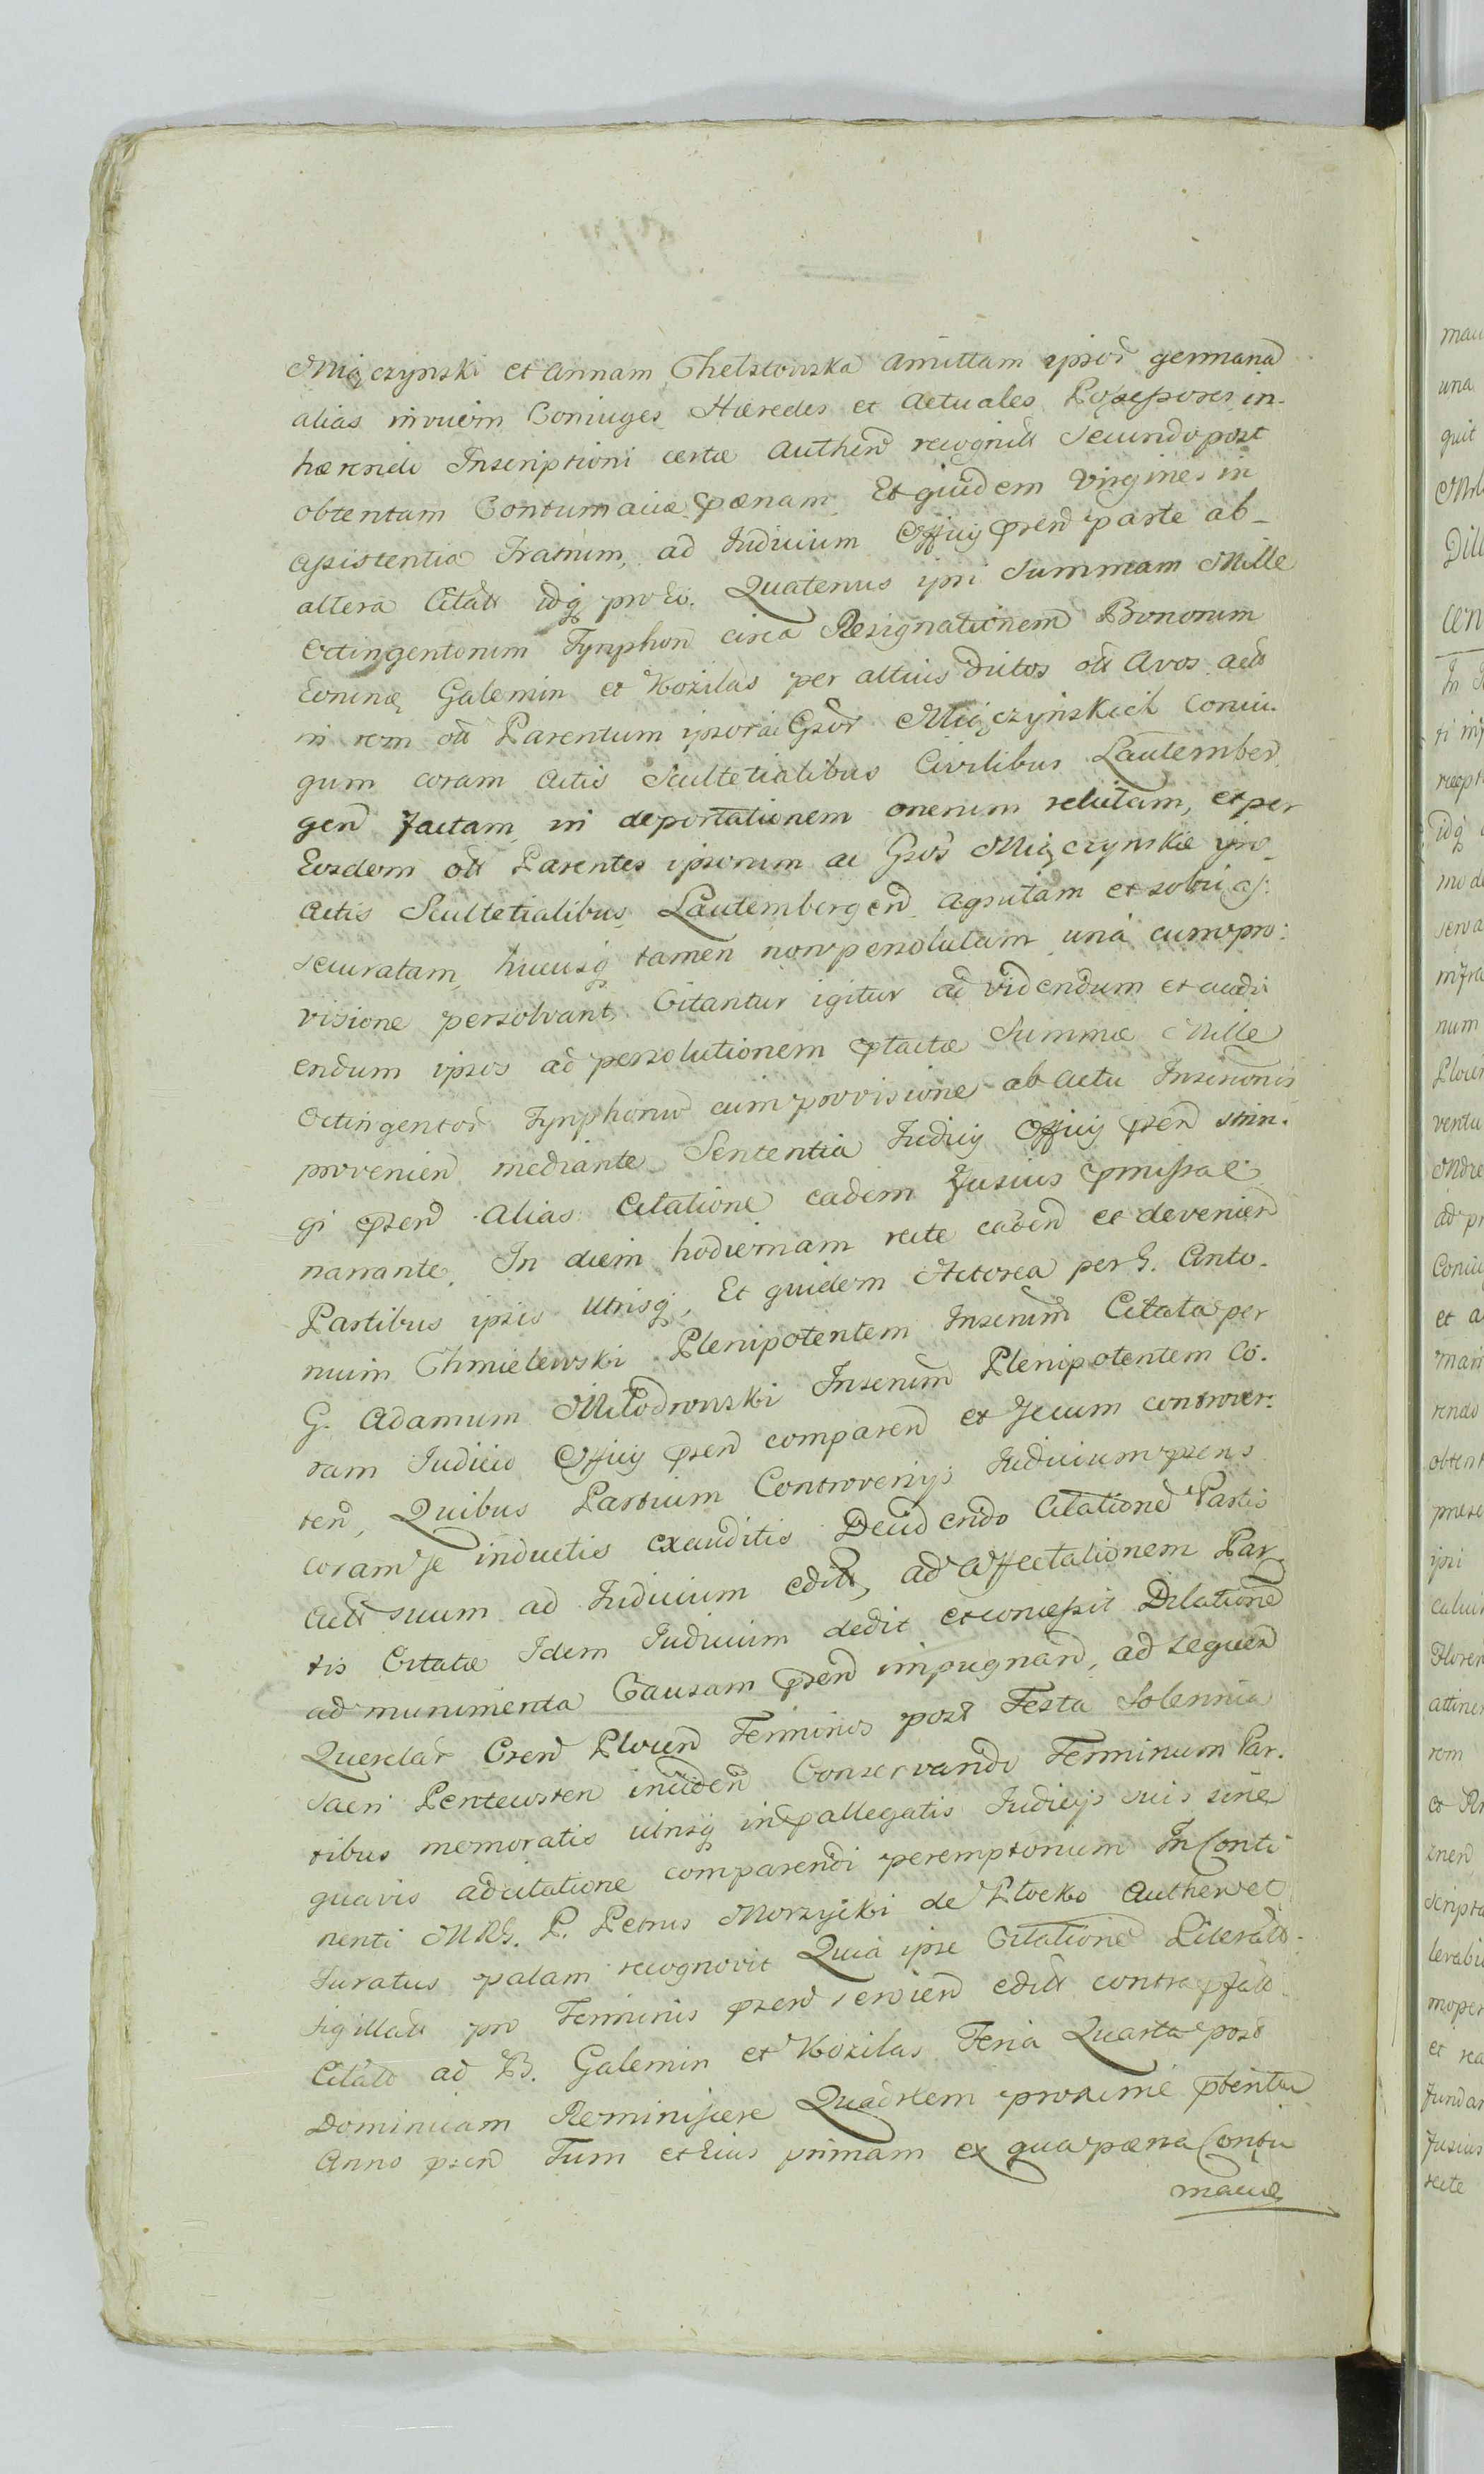 Miączynski et Annam Chelstowska Amittam ipsor germana
alias invicem Coniuges Hæredes et Actuales Possessores in-
hærendo Inscriptioni certæ Authen recognitt secundo post
obtentam Contumaciæ pœnam Et quidem Virgines in
assistentia Fratrum, ad Iudicium Officij pręsen parte ab-
altera Citatt idq pro eo. Quatenus ipsi Summam Mille
Octingentorum Tynphon circa Resignationem Bonorum
Eoninę Galemin et Kozilas per altius dictos ott Avos actt
in rem ott Parentum ipsor ac Gsor Miączyńskich Coniu-
gum coram Actis Scultetialibus Civilibus Lautember
gen factam in deportationem onerum relictam, et per
Eosdem ott Parentes ipsorum ac Gsos Miączynskie
Actis Scultetialibus Lautembergen agnitam et solvi as-
securatam, hucusq tamen non persolutam unà cum pro-
visione persolvant, Citantur igitur ad videndum et audi
endum ipsos ad persolutionem ptactæ Summæ Mille
Octingentor Tynphonu cum provisione ab Actu Inscrionis
provenien mediante Sententia Iudicij Officij psen strin-
gi psen Alias Citatione eadem fusius pmissa e
narrante. In diem hodiernam recte caden et devenien
Partibus ipsis Utrisq, Et quidem Actorea per G. Anto-
nium Chmielewski Plenipotentem Inserum Citata per
G. Adamum Młodowski Inserum Plenipotentem Co-
ram Iudicio Officij psen comparen et Secum controver-
ten, Quibus Partium Controversijs Iudicium psens
coram se inductis exauditis Deciden­do Citatione Partis
Actt suum ad Iudicium editt, ad Affectationem Par-
tis Citatæ Idem Iudicium dedit et concessit Dilatione
ad munimenta Causam psen impugnan, ad sequen
Querelar Cren Plocen Terminos post Festa Solennia
Sacri Pentecosten inciden Conservando Terminum Par-
tibus memoratis utrisq in pallegatis Iudicijs suis sine
quavis adcitatione comparendi peremptorium In Conti
nenti MRls. P. Petrus Morzycki de Plocko Authen et
Iuratus palam recognovit Quia ipse Citatione Literatt
sigillatt pro Terminis psen servien editt contra pfatt
Citatt ad B. Galemin et Kozilas Feria Quarta post
Dominicam Reminiscere Quadrlem proxime pteritu
Anno psen Tum et Eius primam ex qua pæna Contu
maciæ